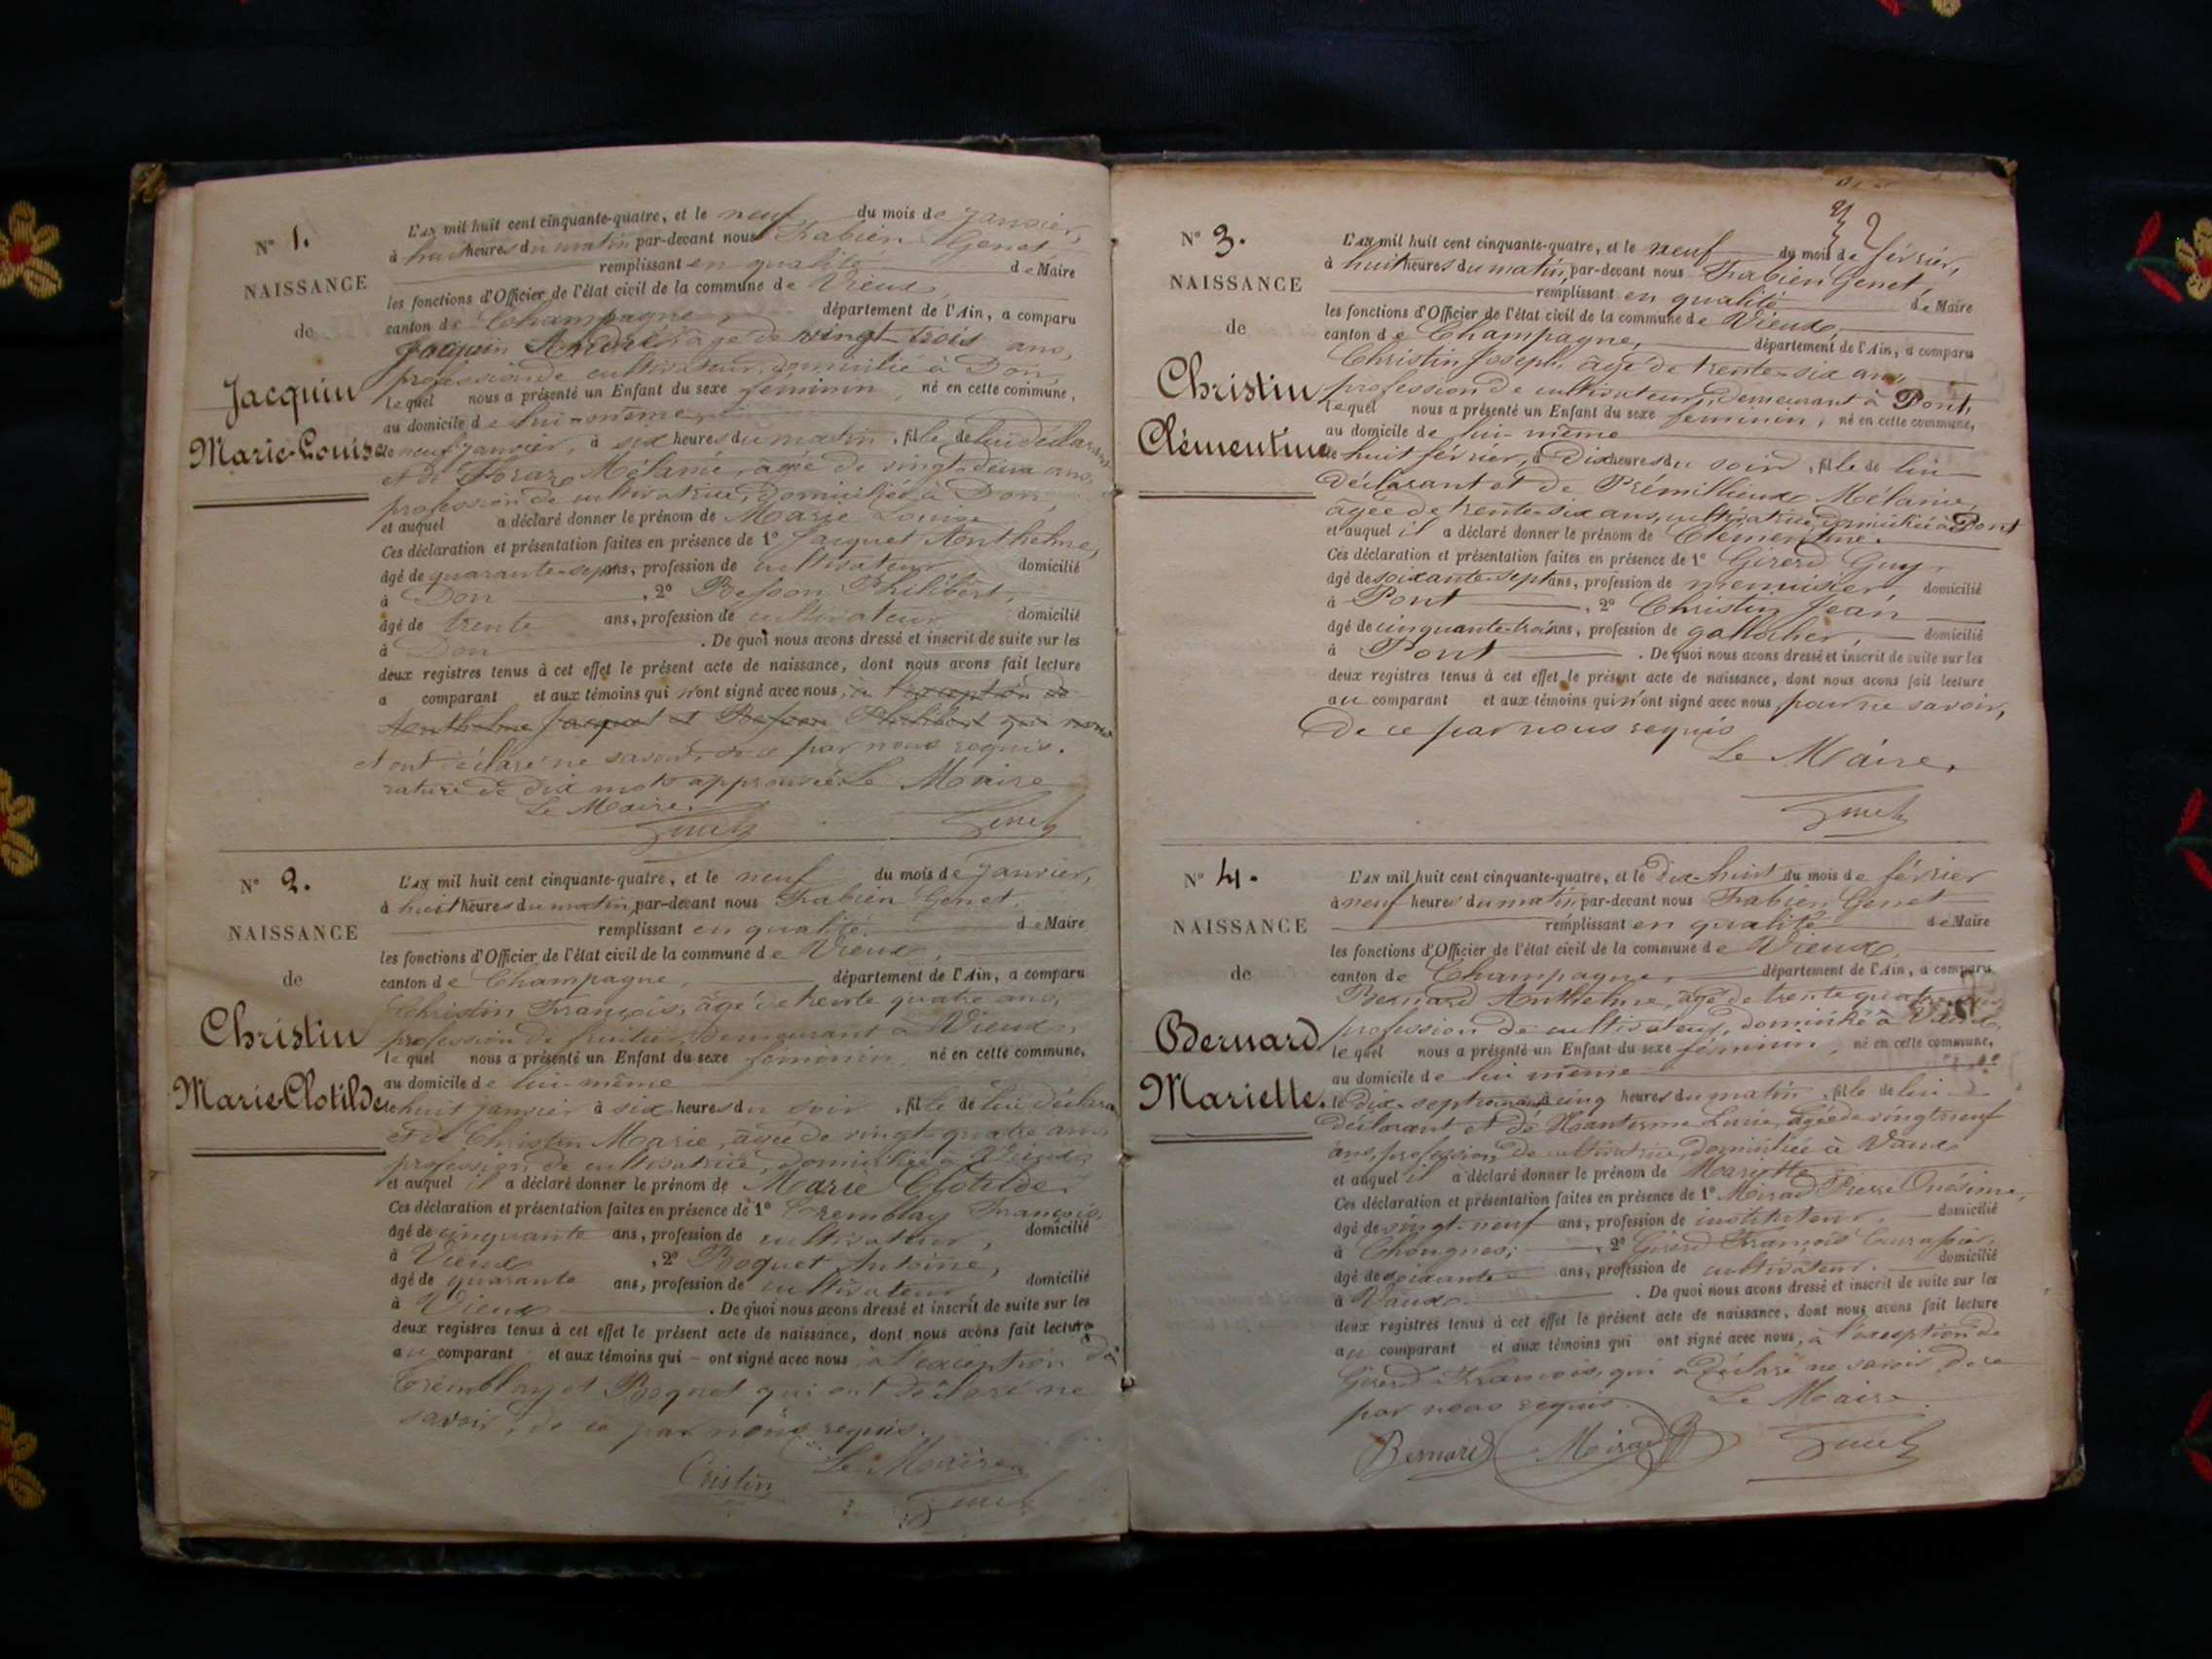 N° 1.
NAISSANCE
de
Jacquin
Marie-Louise
L'AN mil huit cent cinquante-quatre, et le neuf du mois de janvier,
à huit heures du matin par-devant nous Fabien Genet
remplissant en qualité de Maire
les fonctions d'Officier de l'état civil de la commune de Vieux,
canton de Champagne, département de l'Ain, a comparu
Jacquin André âgé de vingt-trois ans,
profession de cultivateur, domicilié à Don,
lequel nous a présenté un Enfant du sexe féminin, né en cette commune,
au domicile de lui-même,
le neuf janvier, à six heures du matin, fille de lui déclarant
et de Mélanie, âgée de vingt-deux ans,
profession de cultivatrice, domiciliée à Don,
et auquel a déclaré donner le prénom de Marie Louise
Ces déclaration et présentation faites en présence de 1° Jacquet Anthelme,
âgé de quarante-sept ans, profession de cultivateur domicilié
à Don, 2° Besson Philibert,
âgé de trente ans, profession de cultivateur domicilié
à Don. De quoi nous avons dressé et inscrit de suite sur les
deux registres tenus à cet effet le présent acte de naissance, dont nous avons fait lecture
a comparant et aux témoins qui n'ont signé avec nous, à l'exception de
Anthelme Jacquet et Besson Philibert qui
et ont déclaré ne savoir, de ce par nous requis.
rature de dix mots approuvée Le Maire
Le Maire.
Genet Genet
N° 2.
NAISSANCE
de
Christin
Marie-Clotilde
L'AN mil huit cent cinquante-quatre, et le neuf du mois de janvier,
à huit heures du matin par-devant nous Fabien Genet,
remplissant en qualité de Maire
les fonctions d'Officier de l'état civil de la commune de Vieux,
canton de Champagne, département de l'Ain, a comparu
Christin François, âgé de trente quatre ans,
profession de fruitier, demeurant à Vieux,
lequel nous a présenté un Enfant du sexe féminin, né en cette commune,
au domicile de lui-même
le huit janvier à six heures du soir, fille de lui déclarant
et de Christin Marie, âgée de vingt-quatre ans,
profession de cultivatrice, domiciliée à Vieux,
et auquel il a déclaré donner le prénom de Marie Clotilde.
Ces déclaration et présentation faites en présence de 1° Tremblay François,
âgé de cinquante ans, profession de cultivateur, domicilié
à Vieux, 2° Boquet Antoine,
âgé de quarante ans, profession de cultivateur domicilié
à Vieux. De quoi nous avons dressé et inscrit de suite sur les
deux registres tenus à cet effet le présent acte de naissance, dont nous avons fait lecture
au comparant et aux témoins qui - ont signé avec nous à l'exception de
Tremblay et Boquet qui ont déclaré ne
savoir, de ce par nous requis.
Le Maire
Cristin Genet
2
N° 3.
NAISSANCE
de
Christin
Clémentine
L'AN mil huit cent cinquante-quatre, et le neuf du mois de février,
à huit heures du matin, par-devant nous Fabien Genet,
remplissant en qualité de Maire
les fonctions d'Officier de l'état civil de la commune de Vieux,
canton de Champagne, département de l'Ain, a comparu
Christin Joseph, âgé de trente-six ans,
profession de cultivateur, demeurant à Pont,
lequel nous a présenté un Enfant du sexe féminin, né en cette commune,
au domicile de lui-même
le huit février, à dix heures du soir, fille de lui
déclarant et de Prémillieux Mélanie,
âgée de trente-six ans, cultivatrice, domiciliée à Pont
et auquel il a déclaré donner le prénom de Clémentine.
Ces déclaration et présentation faites en présence de 1° Girerd Guy,
âgé de soixante-sept ans, profession de menuisier domicilié
à Pont, 2° Christin Jean
âgé de cinquante-trois ans, profession de gallocher, domicilié
à Pont. De quoi nous avons dressé et inscrit de suite sur les
deux registres tenus à cet effet le présent acte de naissance, dont nous avons fait lecture
au comparant et aux témoins qui n'ont signé avec nous, pour ne savoir,
de ce par nous requis
Le Maire,
Genet
N° 4.
NAISSANCE
de
Bernard
Mariette.
L'AN mil huit cent cinquante-quatre, et le dix-huit du mois de février
à neuf heures du matin, par-devant nous Fabien Genet
remplissant en qualité de Maire
les fonctions d'Officier de l'état civil de la commune de Vieux,
canton de Champagne, département de l'Ain, a comparu
Bernard Anthelme, âgé de trente quatre ans,
profession de cultivateur, domicilié à Vaux,
lequel nous a présenté un Enfant du sexe féminin, né en cette commune,
au domicile de lui même
le dix-sept courant à cinq heures du matin, fille de lui
déclarant et de Louise, âgée de vingt neuf
ans, profession de cultivatrice, domiciliée à Vaux
et auquel il a déclaré donner le prénom de Mariette
Ces déclaration et présentation faites en présence de 1° Moirad Pierre Onésime,
âgé de vingt-neuf ans, profession de instituteur, domicilié
à Chongnes, 2° Girerd François
âgé de soixante ans, profession de cultivateur. domicilié
à Vaux. De quoi nous avons dressé et inscrit de suite sur les
deux registres tenus à cet effet le présent acte de naissance, dont nous avons fait lecture
au comparant et aux témoins qui ont signé avec nous, à l'exception de
Girerd François, qui a déclaré ne savoir, de ce
par nous requis. Le Maire.
Bernard Moirad Genet